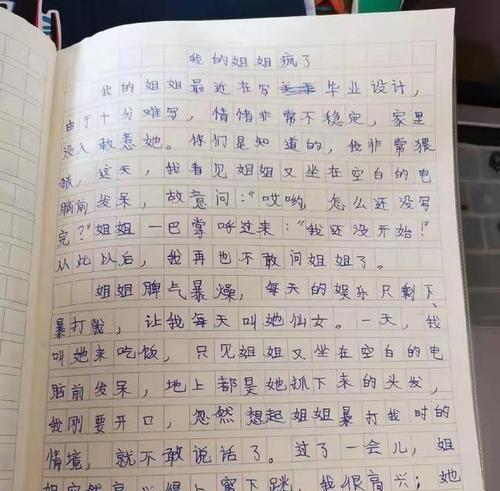 我的姐姐疯了
我的姐姐最近在写毕业设计，
由于十分难写，情绪非常不稳定，家里
没人敢惹她。你们是知道的，我非常猥
琐，这天，我看见姐姐又坐在空白的电
脑前发呆，故意问：“哎哟，怎么还没写
完？”姐姐一巴掌呼过来：“我还没开始！”
从此以后，我再也不敢问姐姐了。
姐姐脾气暴燥，每天的娱乐只剩下
暴打我，让我每天叫她仙女。一天，我
叫她来吃饭，只见姐姐又坐在空白的电
脑前发呆，地上都是她抓下来的头发，
我刚要开口，忽然想起姐姐暴打我时的
情境，就不敢说话了。过了一会儿，姐
姐突然高兴得上窜下跳，我很高兴；她